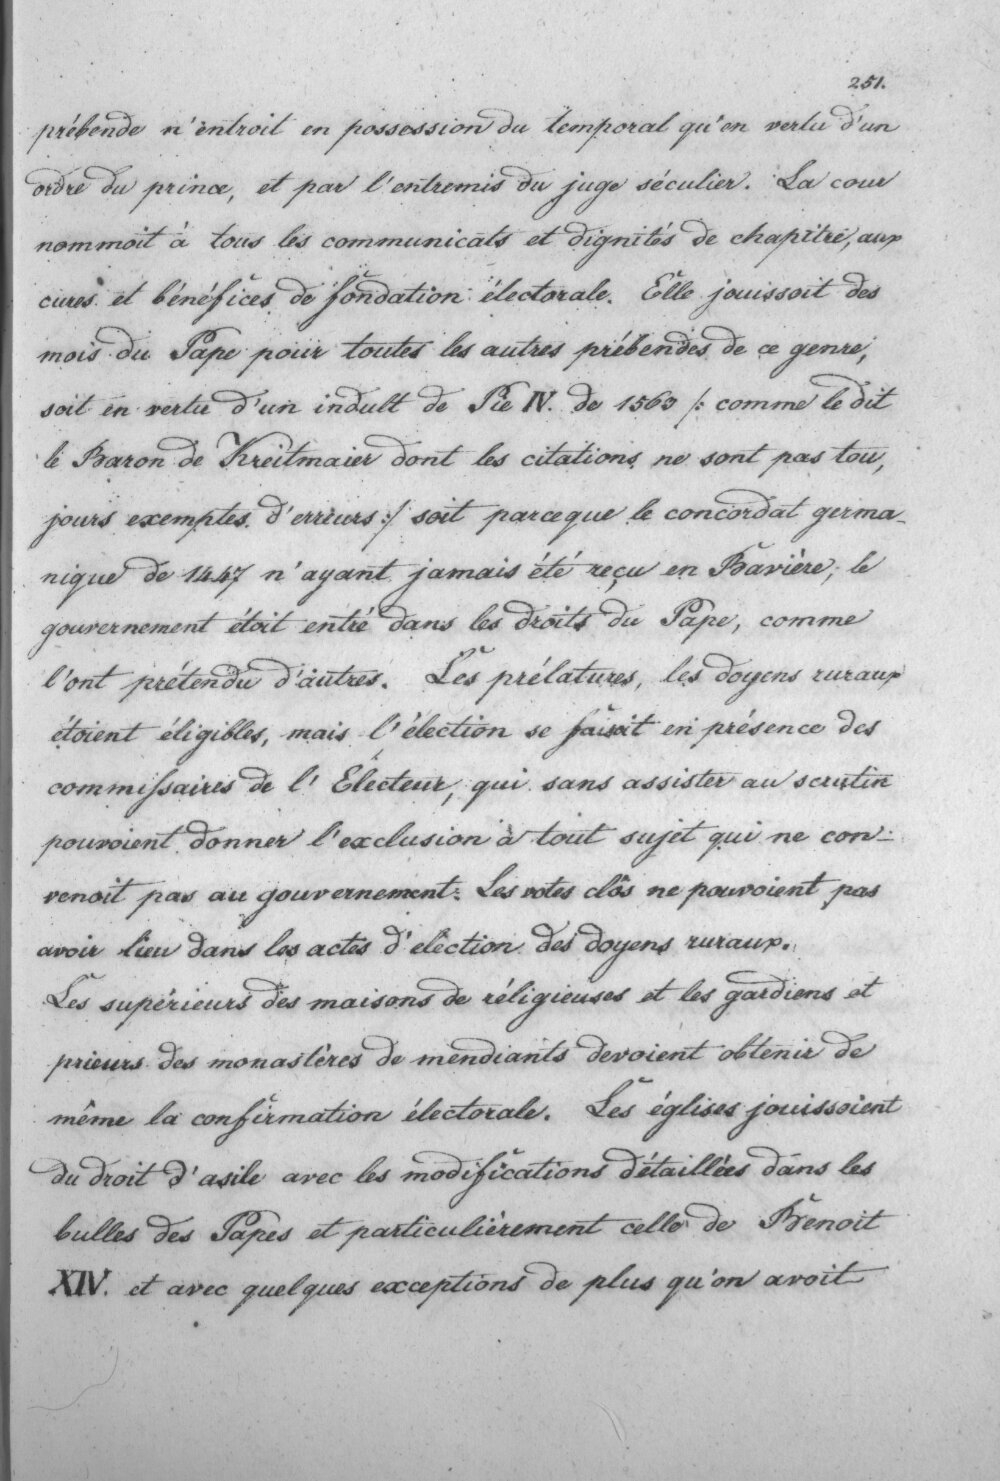 251.
prébende n'entroit en possession du temporal qu'en vertu d'un
ordre du prince, et par l'entremis du juge séculier. La cour
nommoit à tous les communicats et dignités de chapitre, aux
cures et bénéfices de fondation électorale. Elle jouissoit des
mois du Pape pour toutes les autres prébendes de ce genre,
soit en vertu d'un indult de Pie IV. de 1563 /: comme le dit
le Baron de Kreitmaier dont les citations ne sont pas tou,
jours exemptes d'erreurs :/ soit parceque le concordat germa-
nique de 1447 n'ayant jamais été reçu en Bavière, le
gouvernement étoit entré dans les droits du Pape, comme
l'ont prétendu d'autres. Les prélatures, les doyens ruraux
étoient éligibles, mais l'élection se faisoit en présence des
commissaires de l'Electeur, qui sans assister au scrutin
pouvoient donner l'exclusion à tout sujet qui ne con-
venoit pas au gouvernement. Les votes clôs ne pouvoient pas
avoir lieu dans les actes d'élection des doyens ruraux.
Les supérieurs des maisons de réligieuses et les gardiens et
prieurs des monastères de mendiants devoient obtenir de
même la confirmation électorale. Les églises jouissoient
du droit d'asile avec les modifications détaillées dans les
bulles des Papes et particulièrement celle de Benoit
XIV. et avec quelques exceptions de plus qu'on avoit